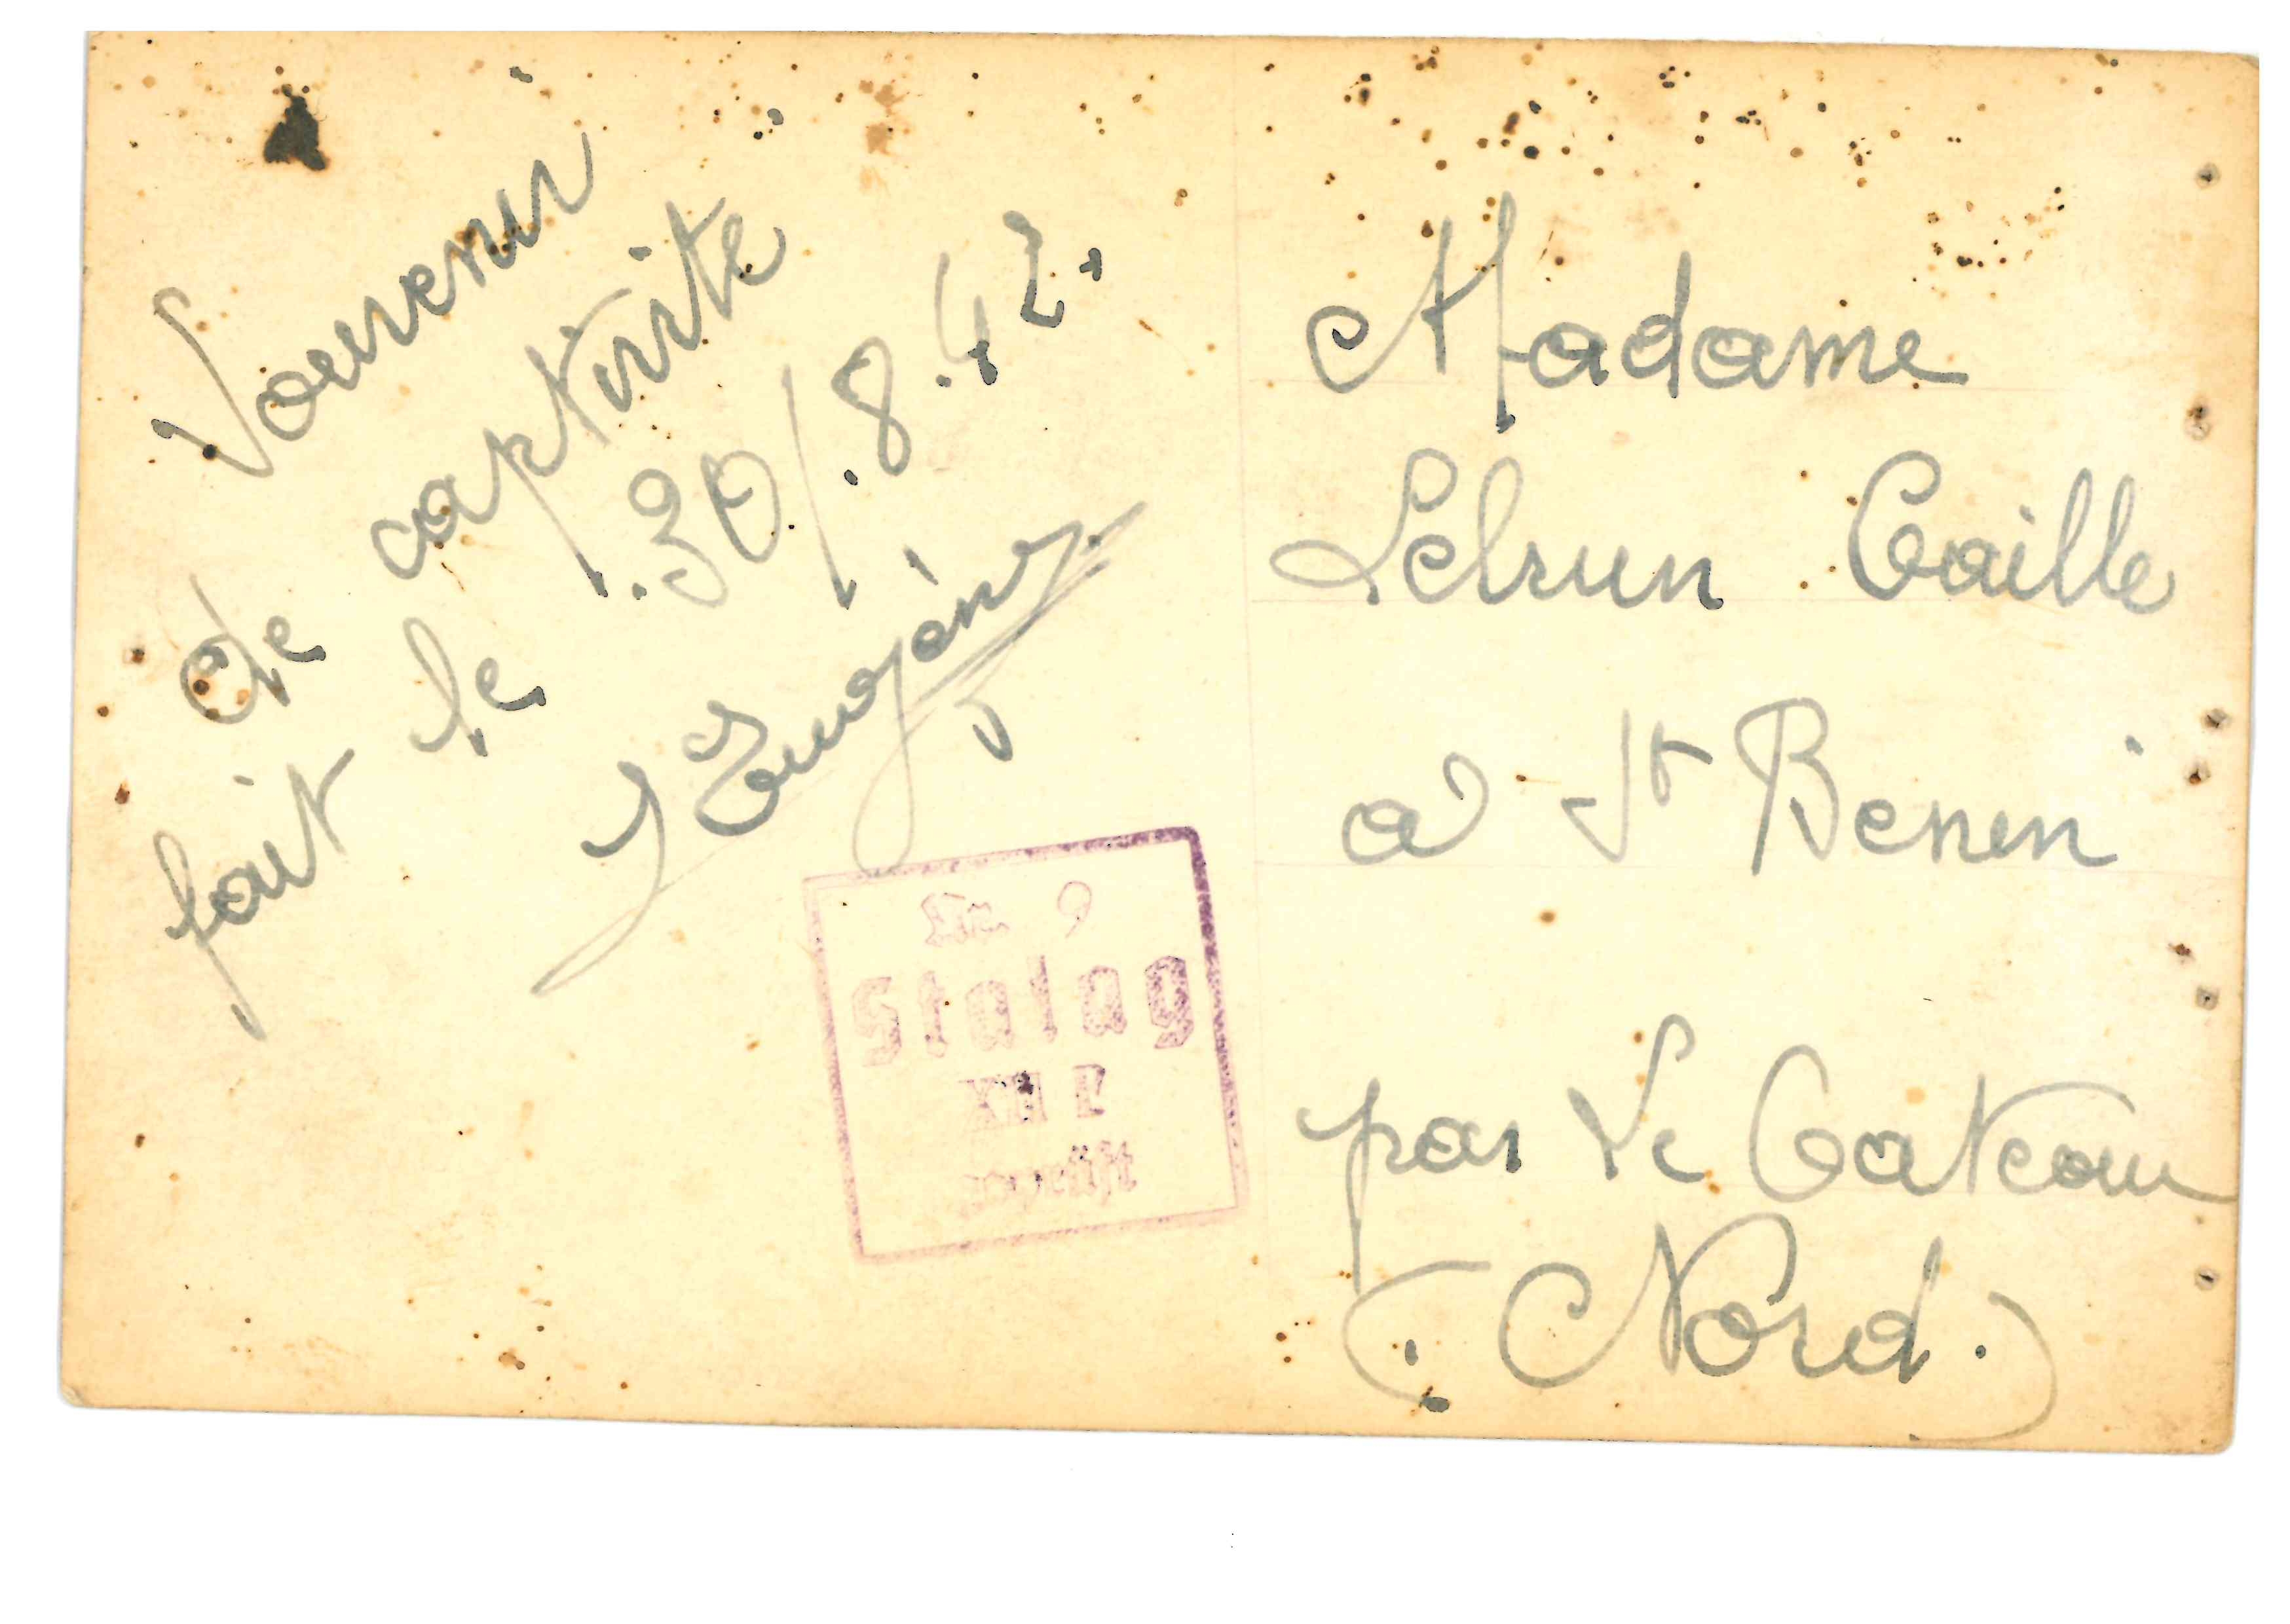 Souvenir
de captivite
fait le 30/8.42.
Eugène
9
Stalag
geprüft
Madame
Lebrun Caille
a St Benin
par Le Cateau
(Nord.)